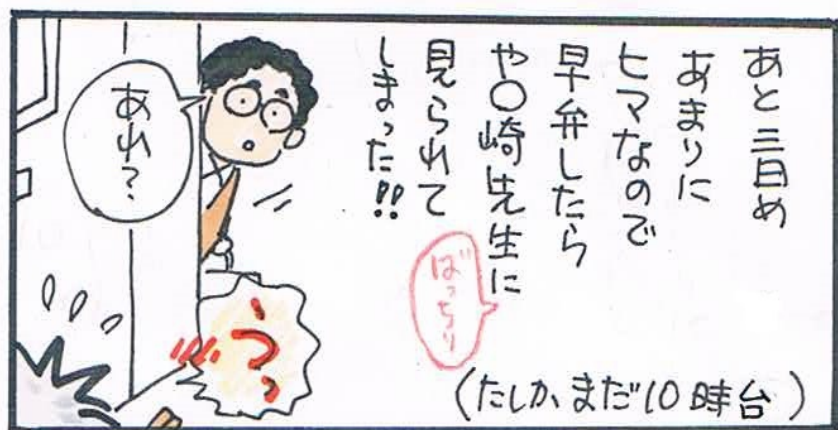 あと三日め
あまりに
ヒマなので
早弁したら
や〇崎先生に
ばっちり
見られて
しまった!!
(たしか、まだ10時台)
あれ?
うっ